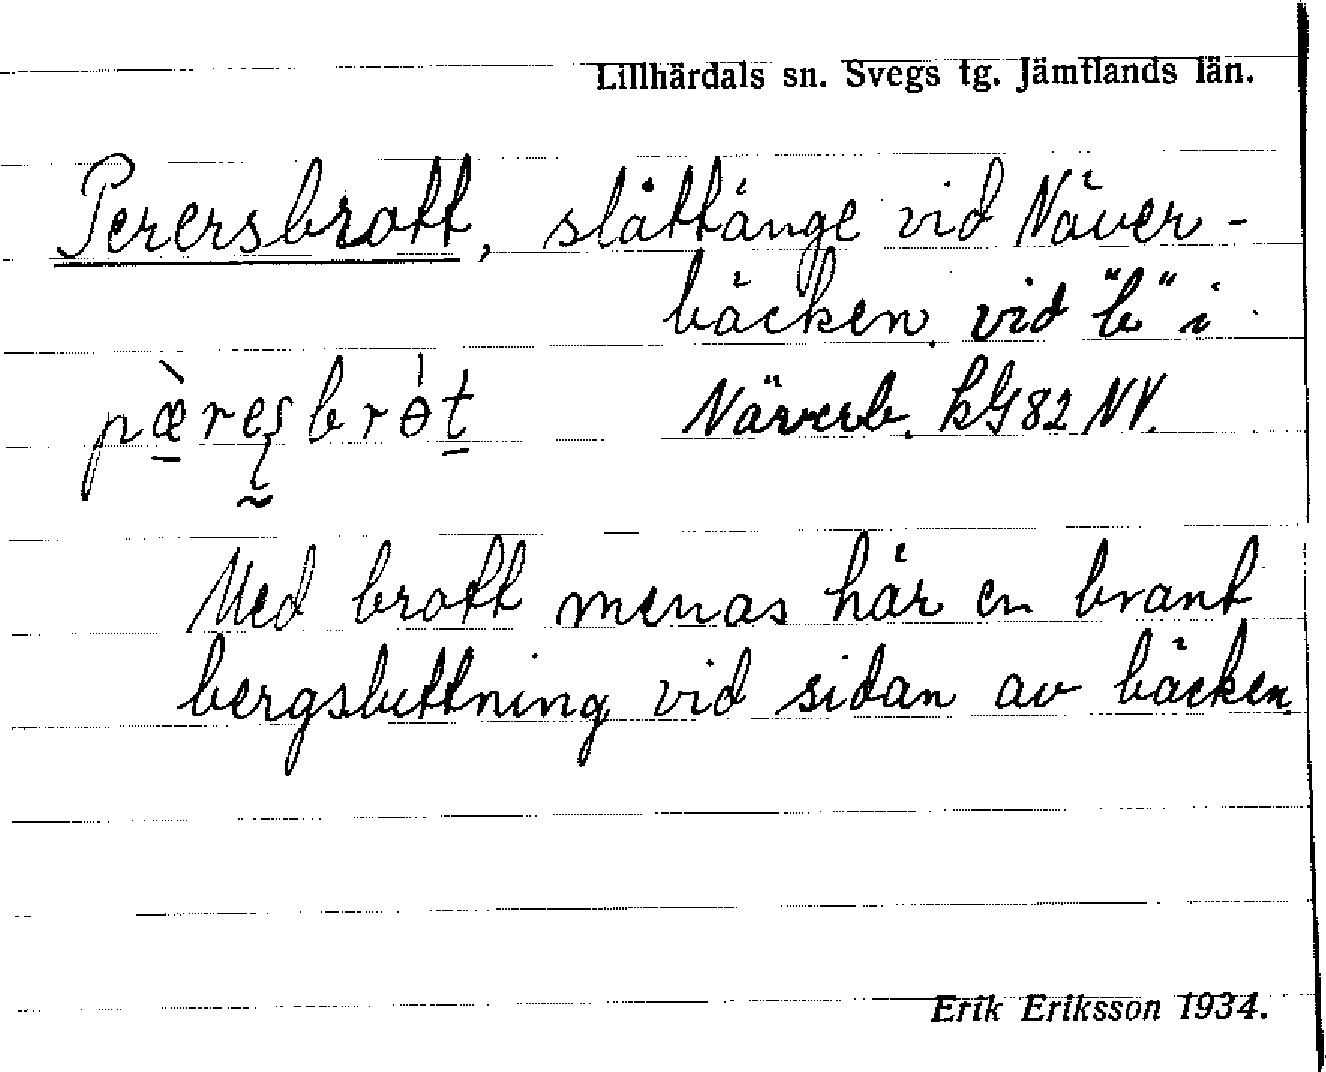 Lillhärdals sn. Svegs tg. Jämtlands län.
Perersbrott, slåttänge vid Näver-
bäcken. vid "b" i
pæ̀rȩsbrɵ́t Näverb. kG 82 NV.
Med brott menas här en brant
bergsluttning vid sidan av bäcken.
Erik Eriksson 1934.